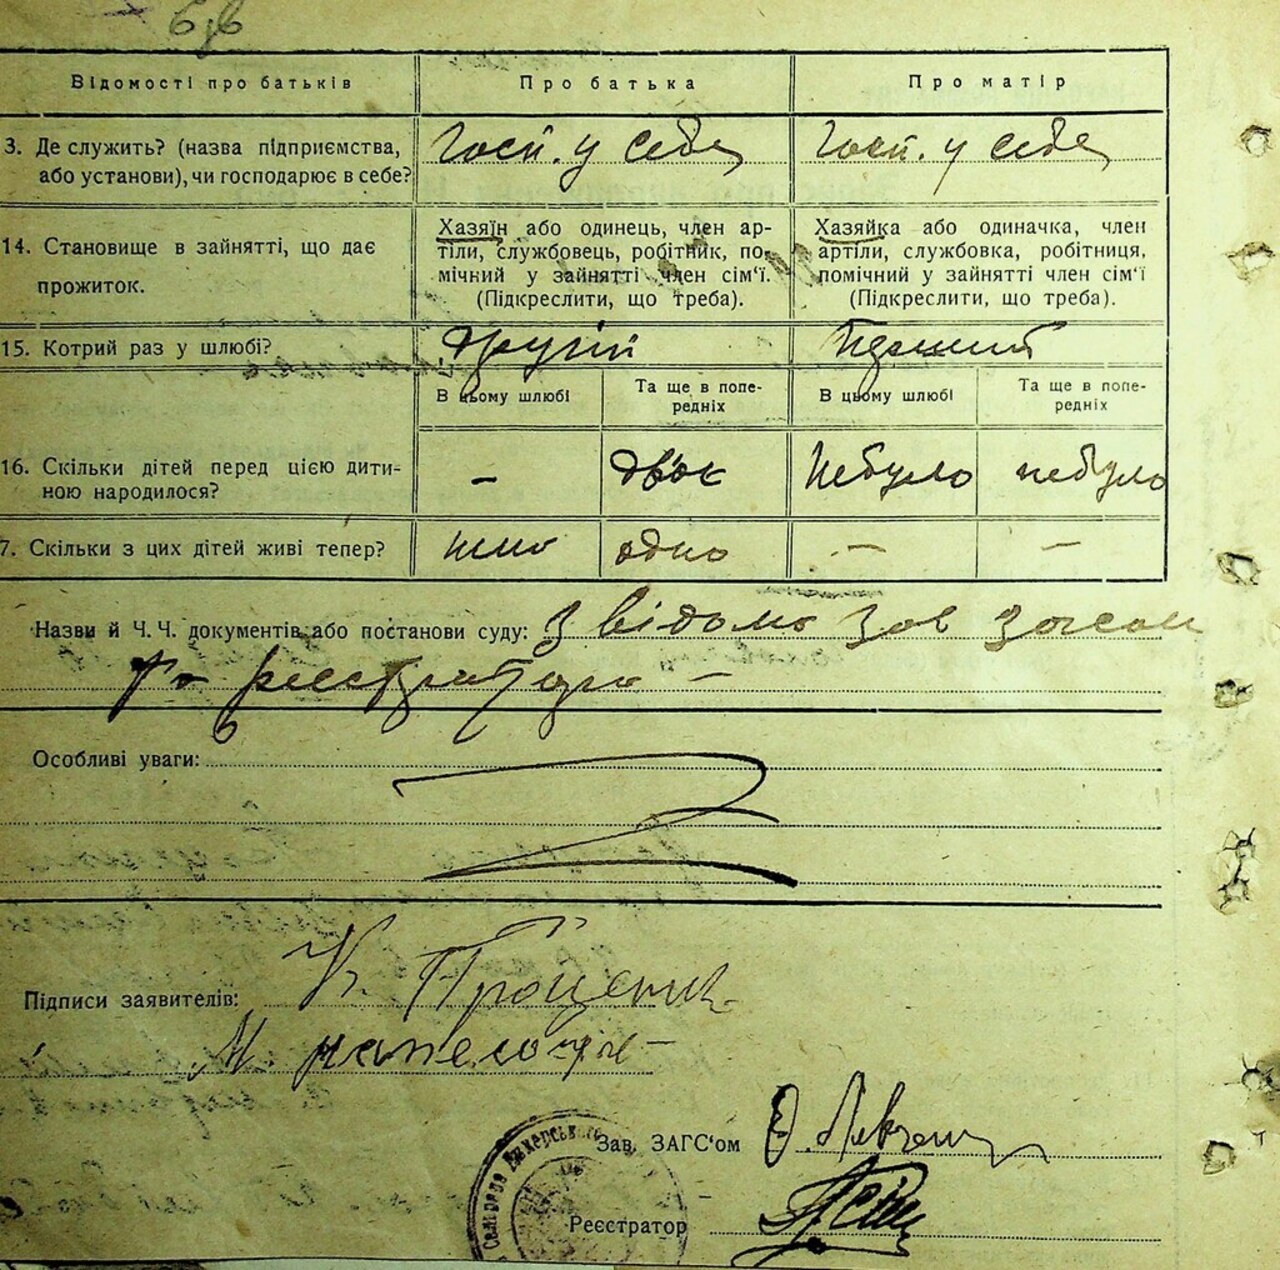 Відомості про батьків Про батька Про матір
3. Де служить? (назва підприємства, або установи), чи господарює в себе?
Госп. у себе Госп. у себе
14. Становище в зайнятті, що дає прожиток.
Хазяїн або одинець, член ар-
тіли, службовець, робітник, по-
мічний у зайнятті член сім'ї.
(Підкреслити, що треба).
Хазяйка або одиначка, член
артіли, службовка, робітниця,
помічний у зайнятті член сім'ї
(Підкреслити, що треба).
15. Котрий раз у шлюбі? другий Перший
В цьому шлюбі Та ще в попе-
редніх В цьому шлюбі Та ще в попе-
редніх
16. Скільки дітей перед цією дити-
ною народилося? – двоє Небуло небуло
7. Скільки з цих дітей живі тепер? одно – –
Назви й Ч. Ч. документів або постанови суду: З відома зав загсом
та реєстратора –
Особливі уваги:
Підписи заявителів: К. Проценко
М.
Зав. ЗАГС'ом О. Левченко
Реєстратор